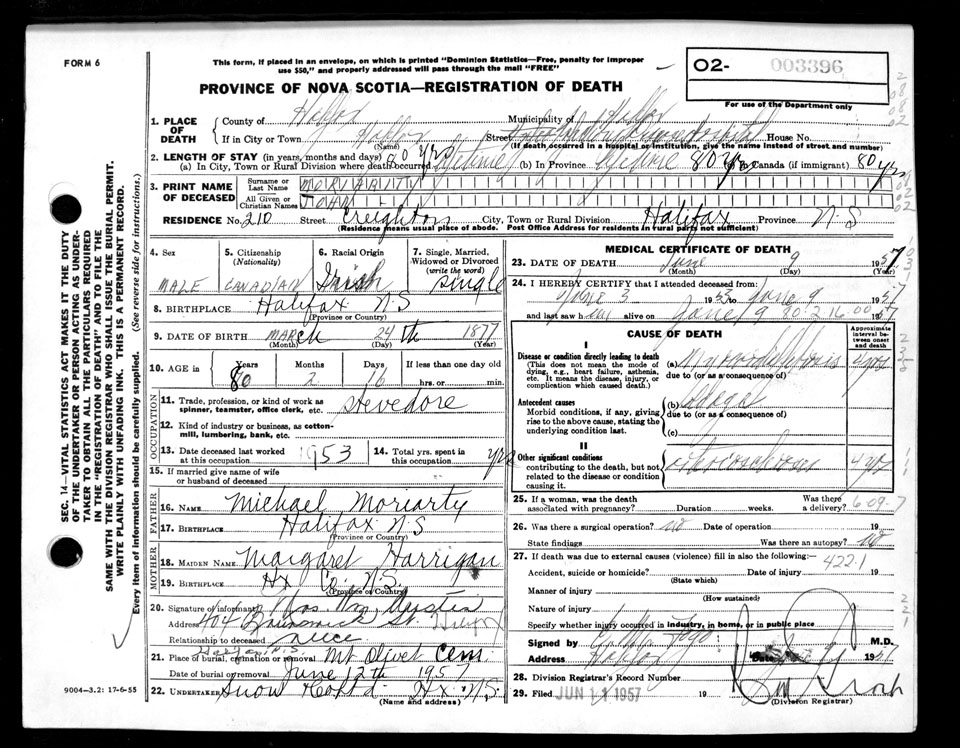 FORM 6
This form, if placed in an envelope, on which is printed "Dominion Statistics—Free, penalty for improper
use $50," and properly addressed will pass through the mail "FREE"
O2- 003396
For use of the Department only
PROVINCE OF NOVA SCOTIA—REGISTRATION OF DEATH
1. PLACE OF DEATH
County of Halifax Municipality of Halifax
If in City or Town Halifax Street House No.
(Name) (If death occurred in a hospital or institution, give the name instead of street and number)
2. LENGTH OF STAY (in years, months and days)
(a) In City, Town or Rural Division where death occurred 80 yrs (b) In Province 80 yrs (c) In Canada (if immigrant) 80 yrs
3. PRINT NAME OF DECEASED
Surname or Last Name MORIARITY
All Given or Christian Names JOHN
RESIDENCE No. 210 Street Creighton City, Town or Rural Division Halifax Province N-S
(Residence means usual place of abode. Post Office Address for residents in rural parts not sufficient)
4. Sex MALE
5. Citizenship (Nationality) CANADIAN
6. Racial Origin Irish
7. Single, Married, Widowed or Divorced (write the word) Single
8. BIRTHPLACE Halifax N-S
(Province or Country)
9. DATE OF BIRTH MARch 24th 1877
(Month) (Day) (Year)
10. AGE Years 80 Months 2 Days 16 If less than one day old hrs. or min.
OCCUPATION
11. Trade, profession, or kind of work as spinner, teamster, office clerk, etc. Stevedore
12. Kind of industry or business, as cotton-mill, lumbering, bank, etc.
13. Date deceased last worked at this occupation 1953
14. Total yrs. spent in this occupation yrs
15. If married give name of wife or husband of deceased
FATHER
16. NAME Michael Moriarty
17. BIRTHPLACE Halifax N-S
(Province or Country)
MOTHER
18. MAIDEN NAME Margaret Harrigan
19. BIRTHPLACE Hx Co. N.S.
(Province or Country)
20. Signature of informant Mrs. Wm
Address 404 Brunswick St.
Relationship to deceased neice
21. Place of burial, cremation or removal Halifax N.S. Mt Olivet Cem
Date of burial or removal June 12th 1957
22. UNDERTAKER Snow Hx N.S.
(Name and address)
MEDICAL CERTIFICATE OF DEATH
23. DATE OF DEATH June 9 1957
(Month) (Day) (Year)
24. I HEREBY CERTIFY that I attended deceased from:
June 3 1953 to June 9 1957
and last saw h alive on June 9 1957
CAUSE OF DEATH
Approximate interval between onset and death
I
Disease or condition directly leading to death (a)
(This does not mean the mode of dying, e.g., heart failure, asthenia, etc. It means the disease, injury, or complication which caused death.)
due to (or as a consequence of)
Antecedent causes (b)
Morbid conditions, if any, giving rise to the above cause, stating the underlying condition last.
due to (or as a consequence of)
(c)
II
Other significant conditions contributing to the death, but not related to the disease or condition causing it. 4 yrs
25. If a woman, was the death associated with pregnancy? Duration weeks. Was there a delivery?
26. Was there a surgical operation? no Date of operation 19
State findings Was there an autopsy? no
27. If death was due to external causes (violence) fill in also the following:— 422.1
Accident, suicide or homicide? Date of injury 19
(State which)
Manner of injury
(How sustained)
Nature of injury
Specify whether injury occurred in industry, in home, or in public place
Signed by M.D.
Address Halifax Date 1957
28. Division Registrar's Record Number
29. Filed JUN 11 1957 19
(Division Registrar)
SEC. 14—VITAL STATISTICS ACT MAKES IT THE DUTY
OF THE UNDERTAKER OR PERSON ACTING AS UNDER-
TAKER TO OBTAIN ALL THE PARTICULARS REQUIRED
IN THE "REGISTRATION OF DEATH" AND TO FILE THE
SAME WITH THE DIVISION REGISTRAR WHO SHALL ISSUE THE BURIAL PERMIT.
WRITE PLAINLY WITH UNFADING INK. THIS IS A PERMANENT RECORD.
Every item of information should be carefully supplied. (See reverse side for instructions.)
9004-3.2: 17-6-55